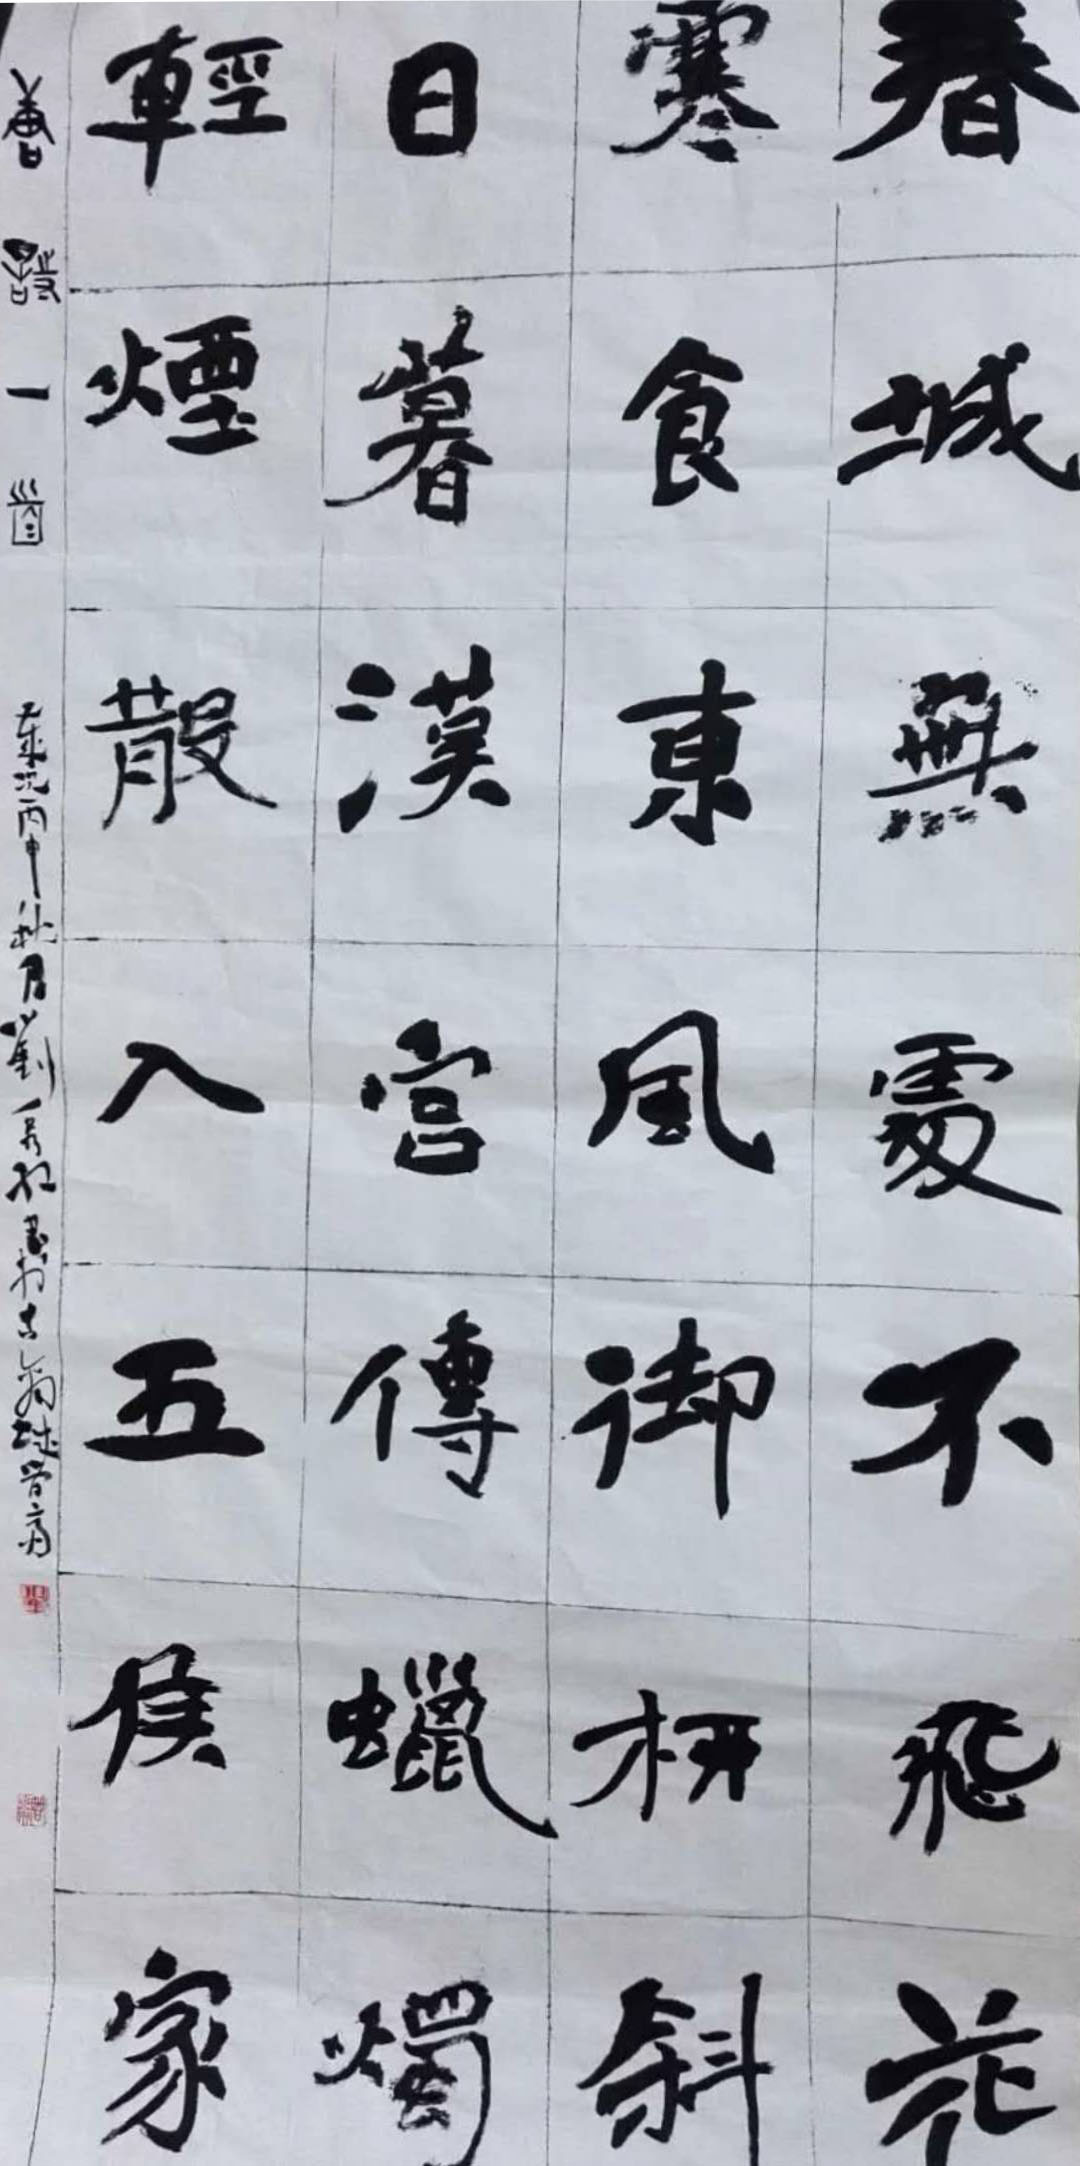 春城無處不飛花
寒食東風御柳斜
日暮漢宮傳蠟燭
輕煙散入五侯家
唐詩一首 歲次丙申秋月劉書於古